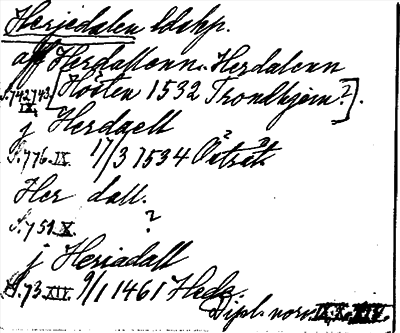 Herjedalen ldskp.
aff Herdallenn. Herdalenn
S. 742, 743. IX. [Hösten 1532 Trondhjem?].
j Herdaell
S. 776. IX. 17/3 1534 Östråt.
Her dall.
S. 751. X. ?
j Heriadall
S. 73. XIV. 9/1 1461 Hede.
Dipl. norv. IX. X. XIV.